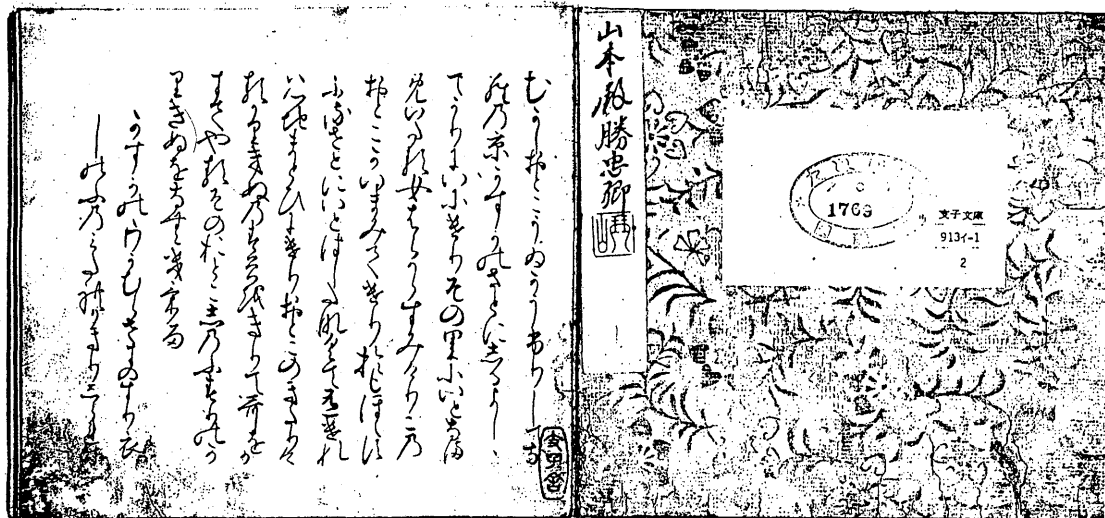 山本殿勝忠卿
琴山
1769
支子文庫
913イ-1
2
むかしおとこうゐかうふりしてな
らの京かすかのさとにしるよしゝ
てかりにいにけりその里にいとなま
めいたる女はらからすみけりこの
おとこかいまみてけりおもほえす
ふるさとにいとはしたなくてありけれ
は心地まとひにけりおとこのきたり
けるかりきぬのすそをきりて哥をか
きてやるそのおとこしのふすりのか
りきぬをなむきたりける
かすかのゝわかむらさきのすり衣
しのふのみたれかきりしられす